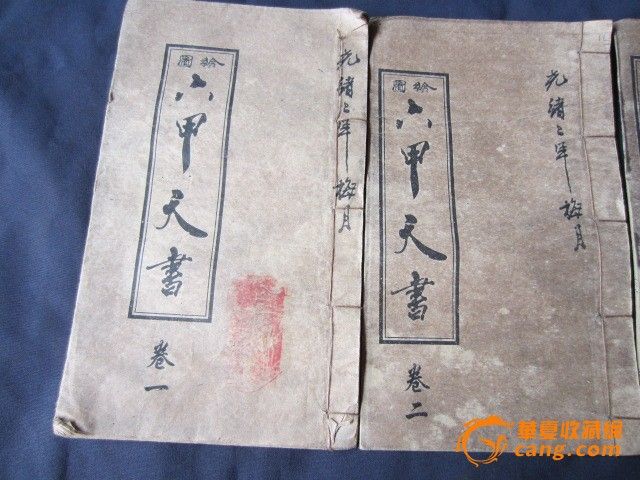 繪圖
六甲天書
卷一
光緒二年梅月
繪圖
六甲天書
卷二
光緒二年梅月
華夏收藏網
cang.com